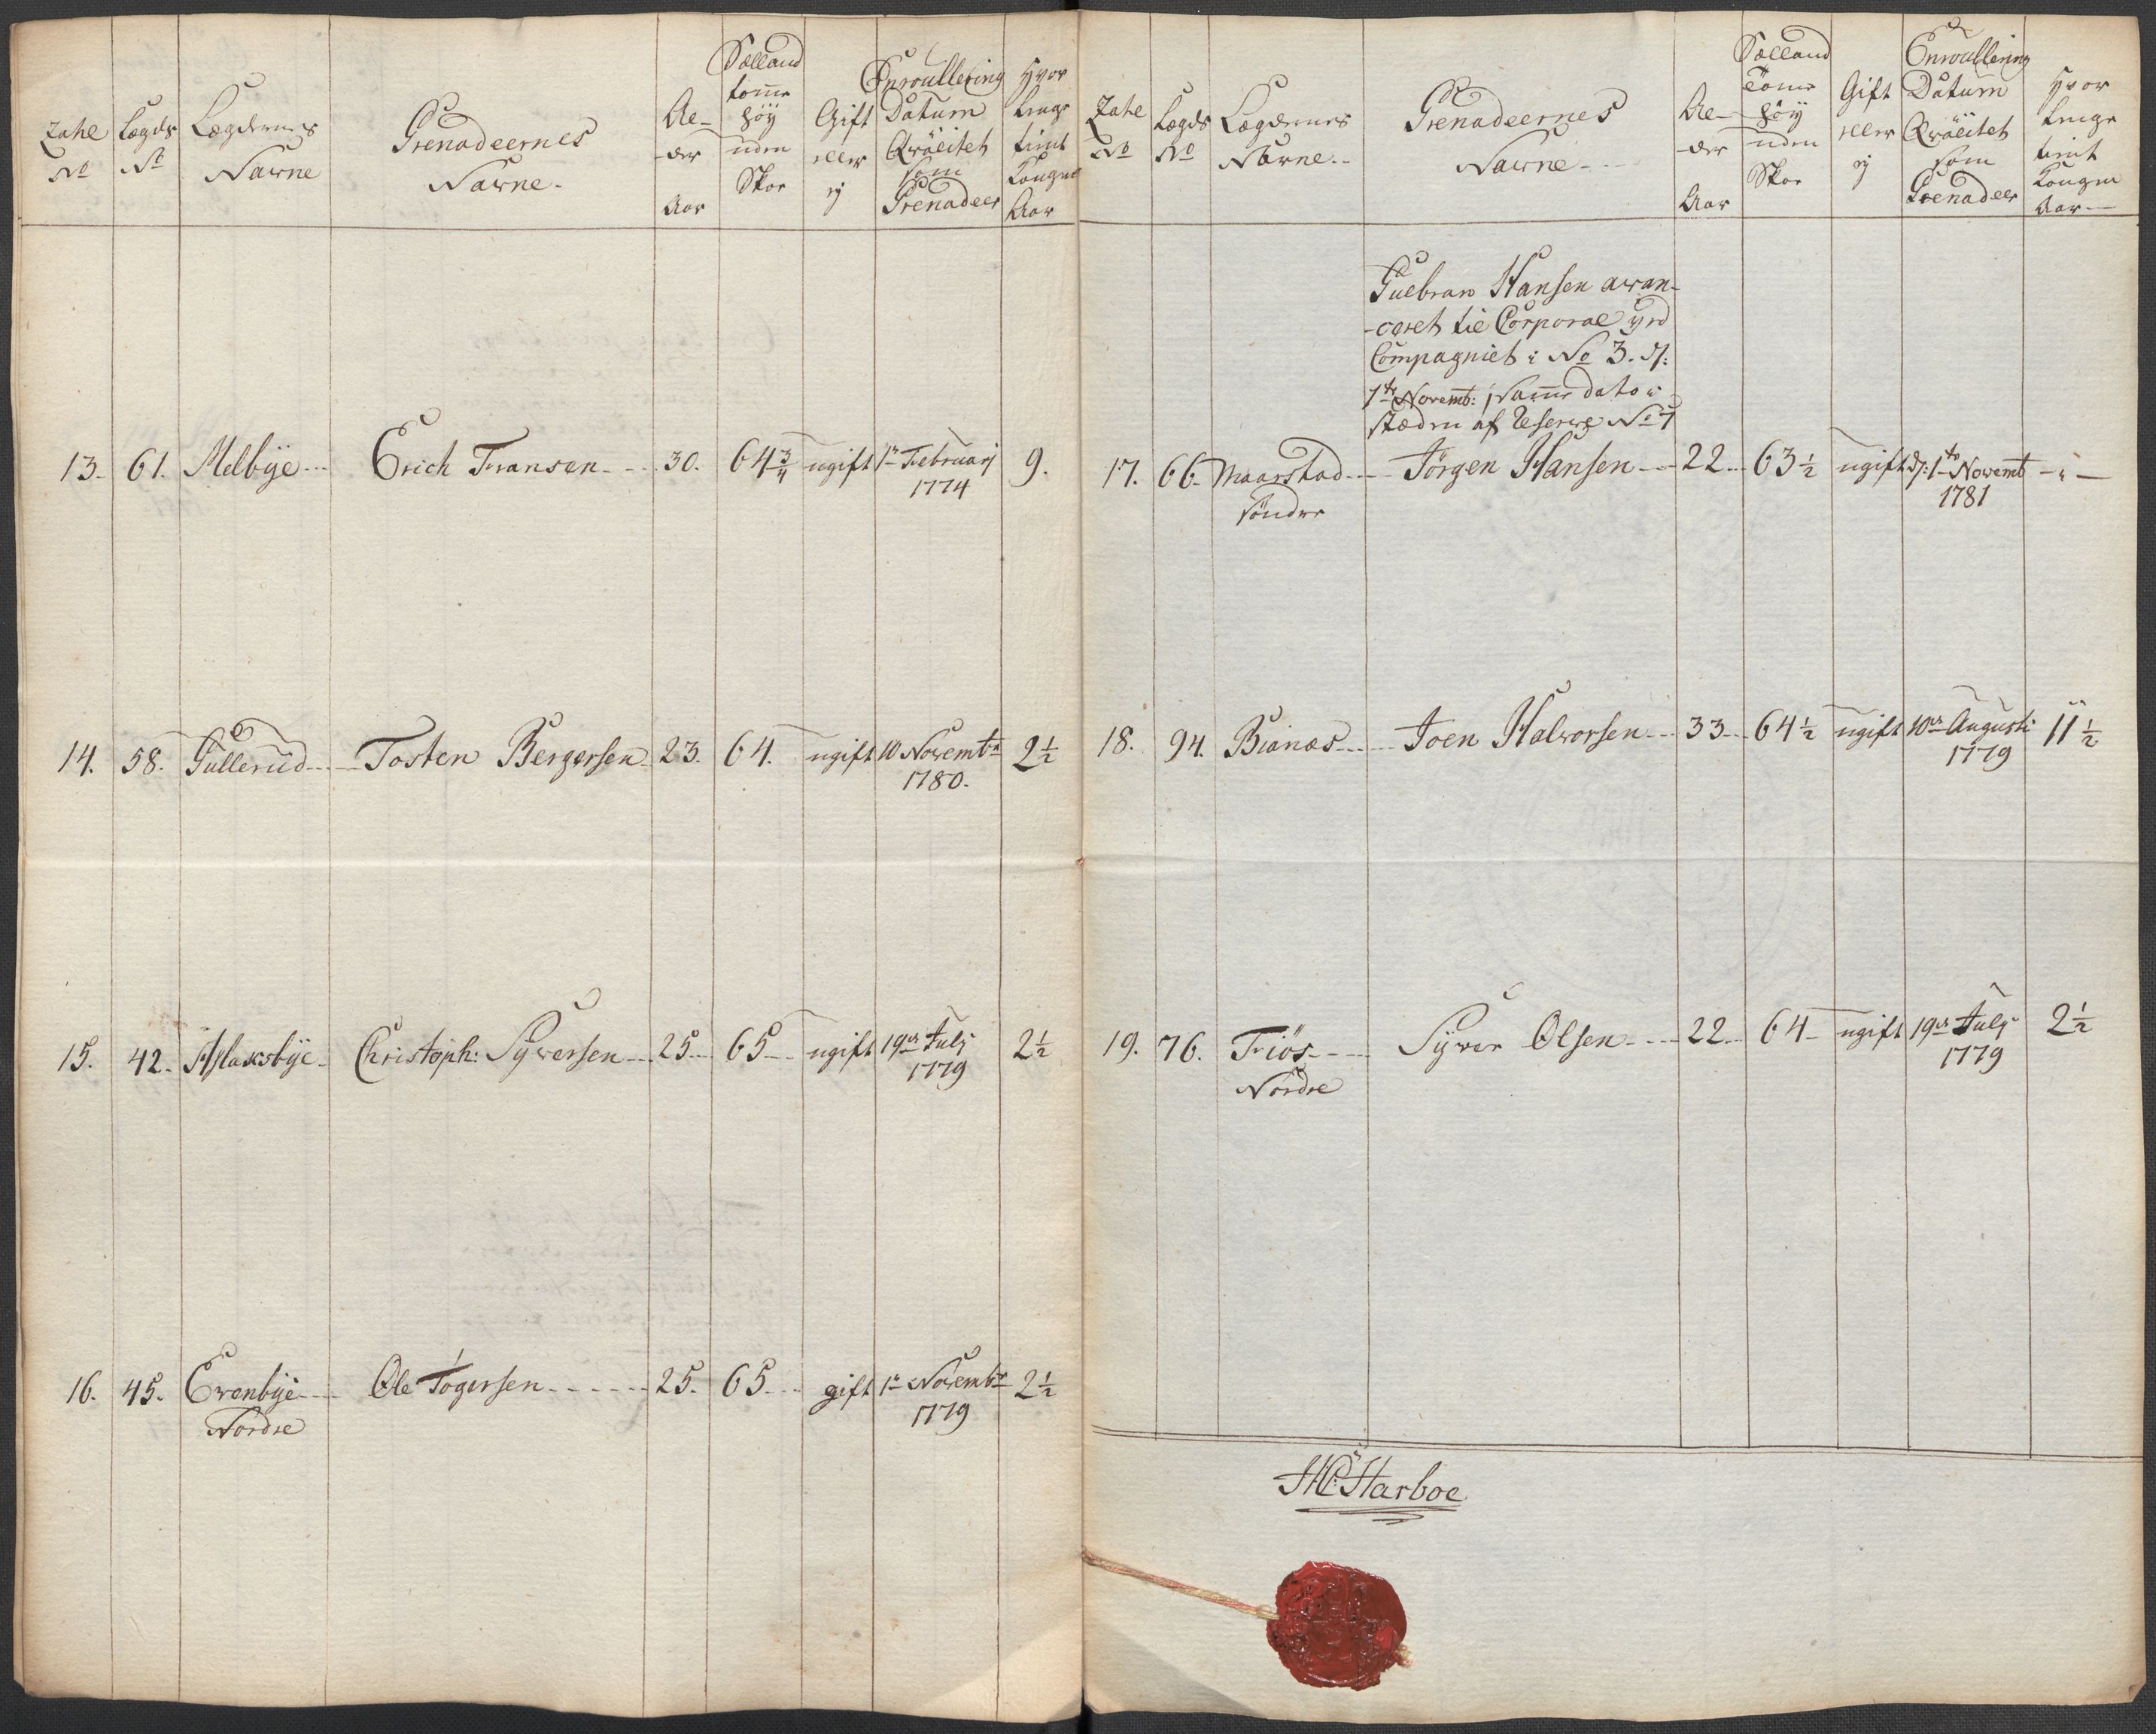 Zahl No | Lægds No | Lægdernes Navne | Grenadeernes Navne | Al-der Aar | Sælland tomr høy uden Skoe | Gift eller ej | Enroullering Datum Qvälitet som Grenadeer | Hvor lenge tient Kongen Aar
13. 61. Melbÿe Erich Fransen 30. 64 3/4 ugift 1te Februarj 1774 9.
14. 58. Gullerud Tosten Bergersen 23. 64. ugift 10 Novembr 1780. 2 1/2
15. 42. Aslaksbÿe Christoph: Sÿversen 25 65 ugift 19de Julj 1779 2 1/2
16. 45. Evenbÿe Nordre Ole Togersen 25. 65 gift 1te Novembr 1779 2 1/2
Zahl No | Lægds No | Lægdernes Navne | Grenadeernes Navne | Al-der Aar | Sælland tomr høy uden Skoe | Gift eller ej | Enroullering Datum Qvälitet som Grenadeer | Hvor lenge tient Kongen Aar
Gulbran Hansen avan-
-ceret til Corporal ved
Compagniet i No 3. d:
1te Novemb: j samme dato i
stæden af Reserve No 7
17. 66. Maarstad Søndre Jörgen Hansen 22 63 1/2 ugift d: 1te Novemb 1781 - " -
18. 94. Bianæs Joen Halvorsen 33 64 1/2 ugift 10de Augusti 1779 11 1/2
19. 76. Friös Nordre Sÿver Olsen 22 64 ugift 19de Julj 1779 2 1/2
HC Harboe